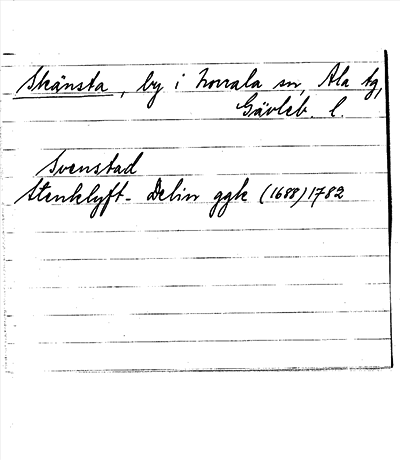 Skånsta, by i Norrala sn, Ala tg,
Gävleb. l.
Svenstad
Stenklyft- Delin ggk (1688) 1782